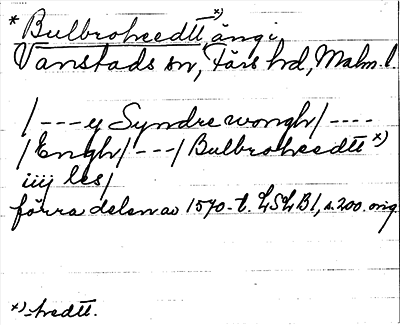 * Bulbrohredtt *), äng i
Vanstads sn, Färs hd, Malm. l.
/---ÿ Syndre wongh/----
/Engh/---/Bulbrohredtt *)
iiij les/
förra delen av 1570-t. LSLB1, s. 200. orig
*) -hredtt.